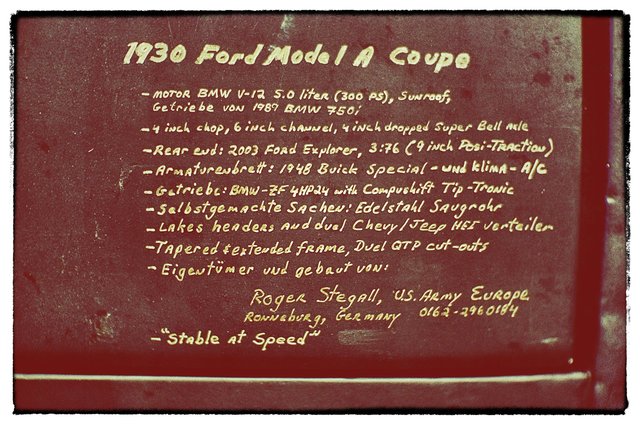 1930 Ford Model A Coupe
- MOTOR BMW V-12 5.0 liter (300 PS), Sunroof,
Getriebe von 1989 BMW 750i
- 4 inch chop, 6 inch channel, 4 inch dropped Super Bell axle
- Rear end: 2003 Ford Explorer, 3:76 (9 inch Posi-Traction)
- Armaturenbrett: 1948 Buick Special - und klima - A/C
- Getriebe: BMW-ZF 4HP24 with Compushift Tip-Tronic
- Selbstgemachte Sachen: Edelstahl Saugrohr
- Lakes headers and duel Chevy/Jeep HEI verteiler
- Tapered & extended frame, Duel QTP cut-outs
- Eigentümer und gebaut von:
Roger Stegall, U.S. Army Europe
Ronneburg, Germany 0162-2960184
- "Stable at Speed"